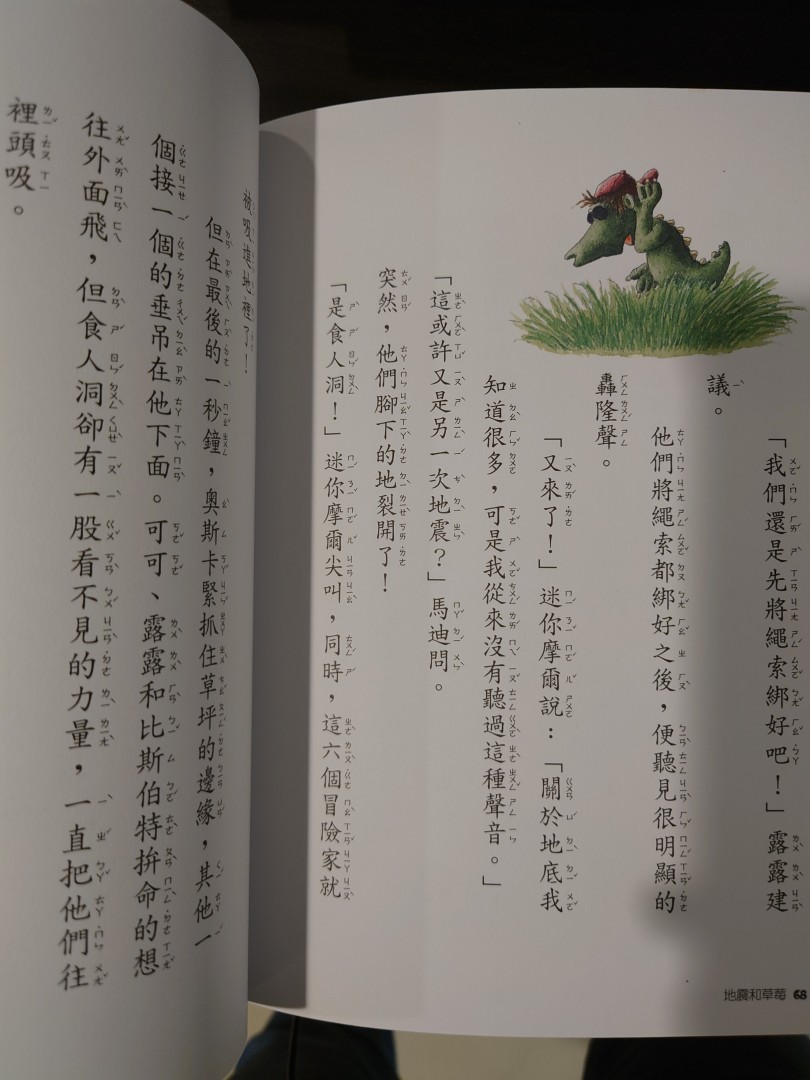 「我們還是先將繩索綁好吧！」露露建
議。
他們將繩索都綁好之後，便聽見很明顯的
轟隆聲。
「又來了！」迷你摩爾說：「關於地底我
知道很多，可是我從來沒有聽過這種聲音。」
「這或許又是另一次地震？」馬迪問。
突然，他們腳下的地裂開了！
「是食人洞！」迷你摩爾尖叫，同時，這六個冒險家就
被吸進地裡了！
但在最後的一秒鐘，奧斯卡緊抓住草坪的邊緣，其他一
個接一個的垂吊在他下面。可可、露露和比斯伯特拚命的想
往外面飛，但食人洞卻有一股看不見的力量，一直把他們往
裡頭吸。
地震和草莓 68